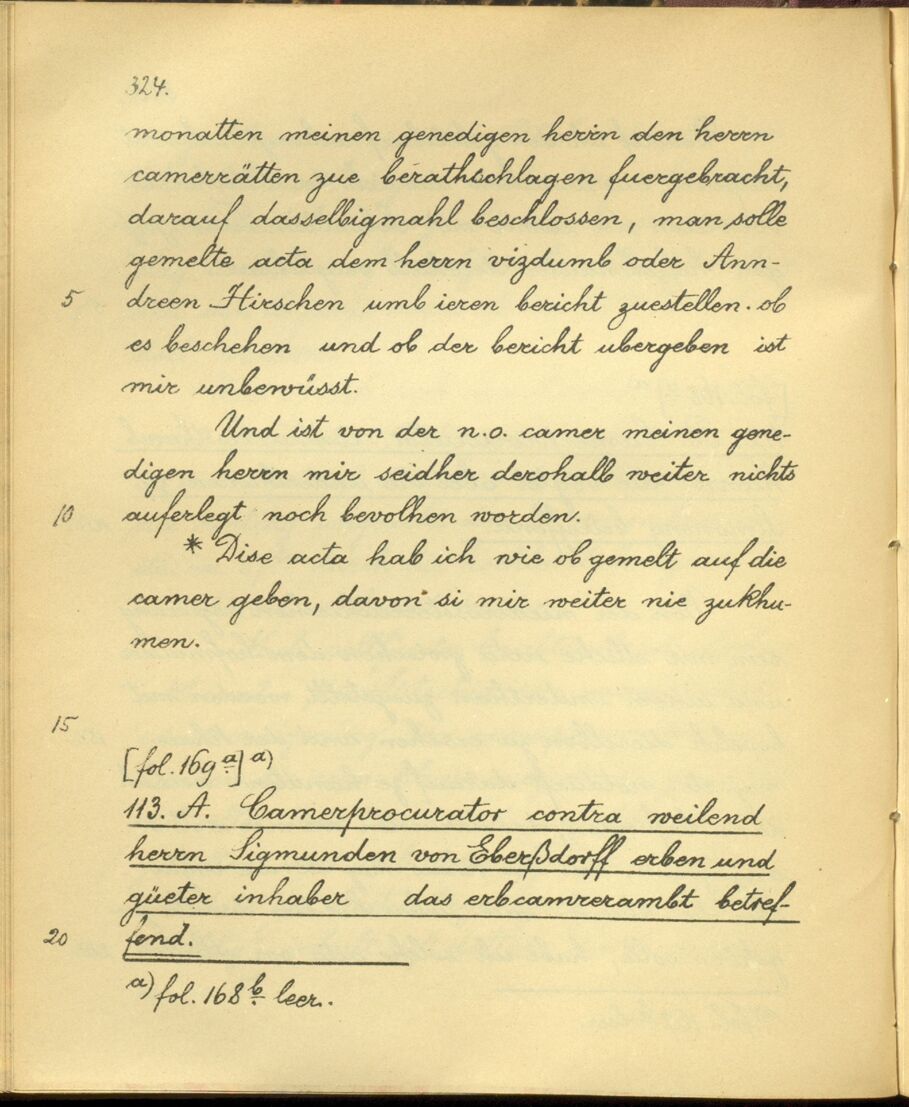 324.
monatten meinen genedigen herrn den herrn
camerrätten zue berathschlagen fuergebracht,
darauf dasselbigmahl beschlossen, man solle
gemelte acta dem herrn vizdumb oder Ann-
5 dreen Hirschen umb ieren bericht zuestellen. ob
es beschehen und ob der bericht ubergeben ist
mir unbewüsst.
Und ist von der n.o. camer meinen gene-
digen herrn mir seidher derohalb weiter nichts
10 auferlegt noch bevolhen worden.
* Dise acta hab ich wie ob gemelt auf die
camer geben, davon si mir weiter nie zukhu-
men.
15
[fol. 169 a] a)
113. A. Camerprocurator contra weilend
herrn Sigmunden von Eberßdorff erben und
güeter inhaber das erbcamrerambt betref-
20 fend.
a) fol. 168 b leer.